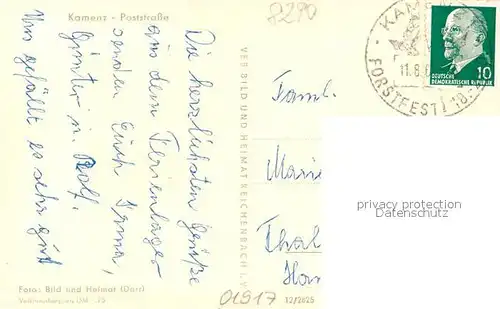 Kamenz - Poststraße
8290
Die herzlichsten Grüße
aus dem Ferienlager
senden Euch Irma,
Günter u. Rolf.
Uns gefällt es sehr gut
VEB BILD UND HEIMAT REICHENBACH I. V.
Foto: Bild und Heimat (Darr)
Faml.
Marie
Thal
01917
12/2625
KAMENZ
11.8.
FORSTFEST
DEUTSCHE
DEMOKRATISCHE REPUBLIK
10
privacy protection
Datenschutz